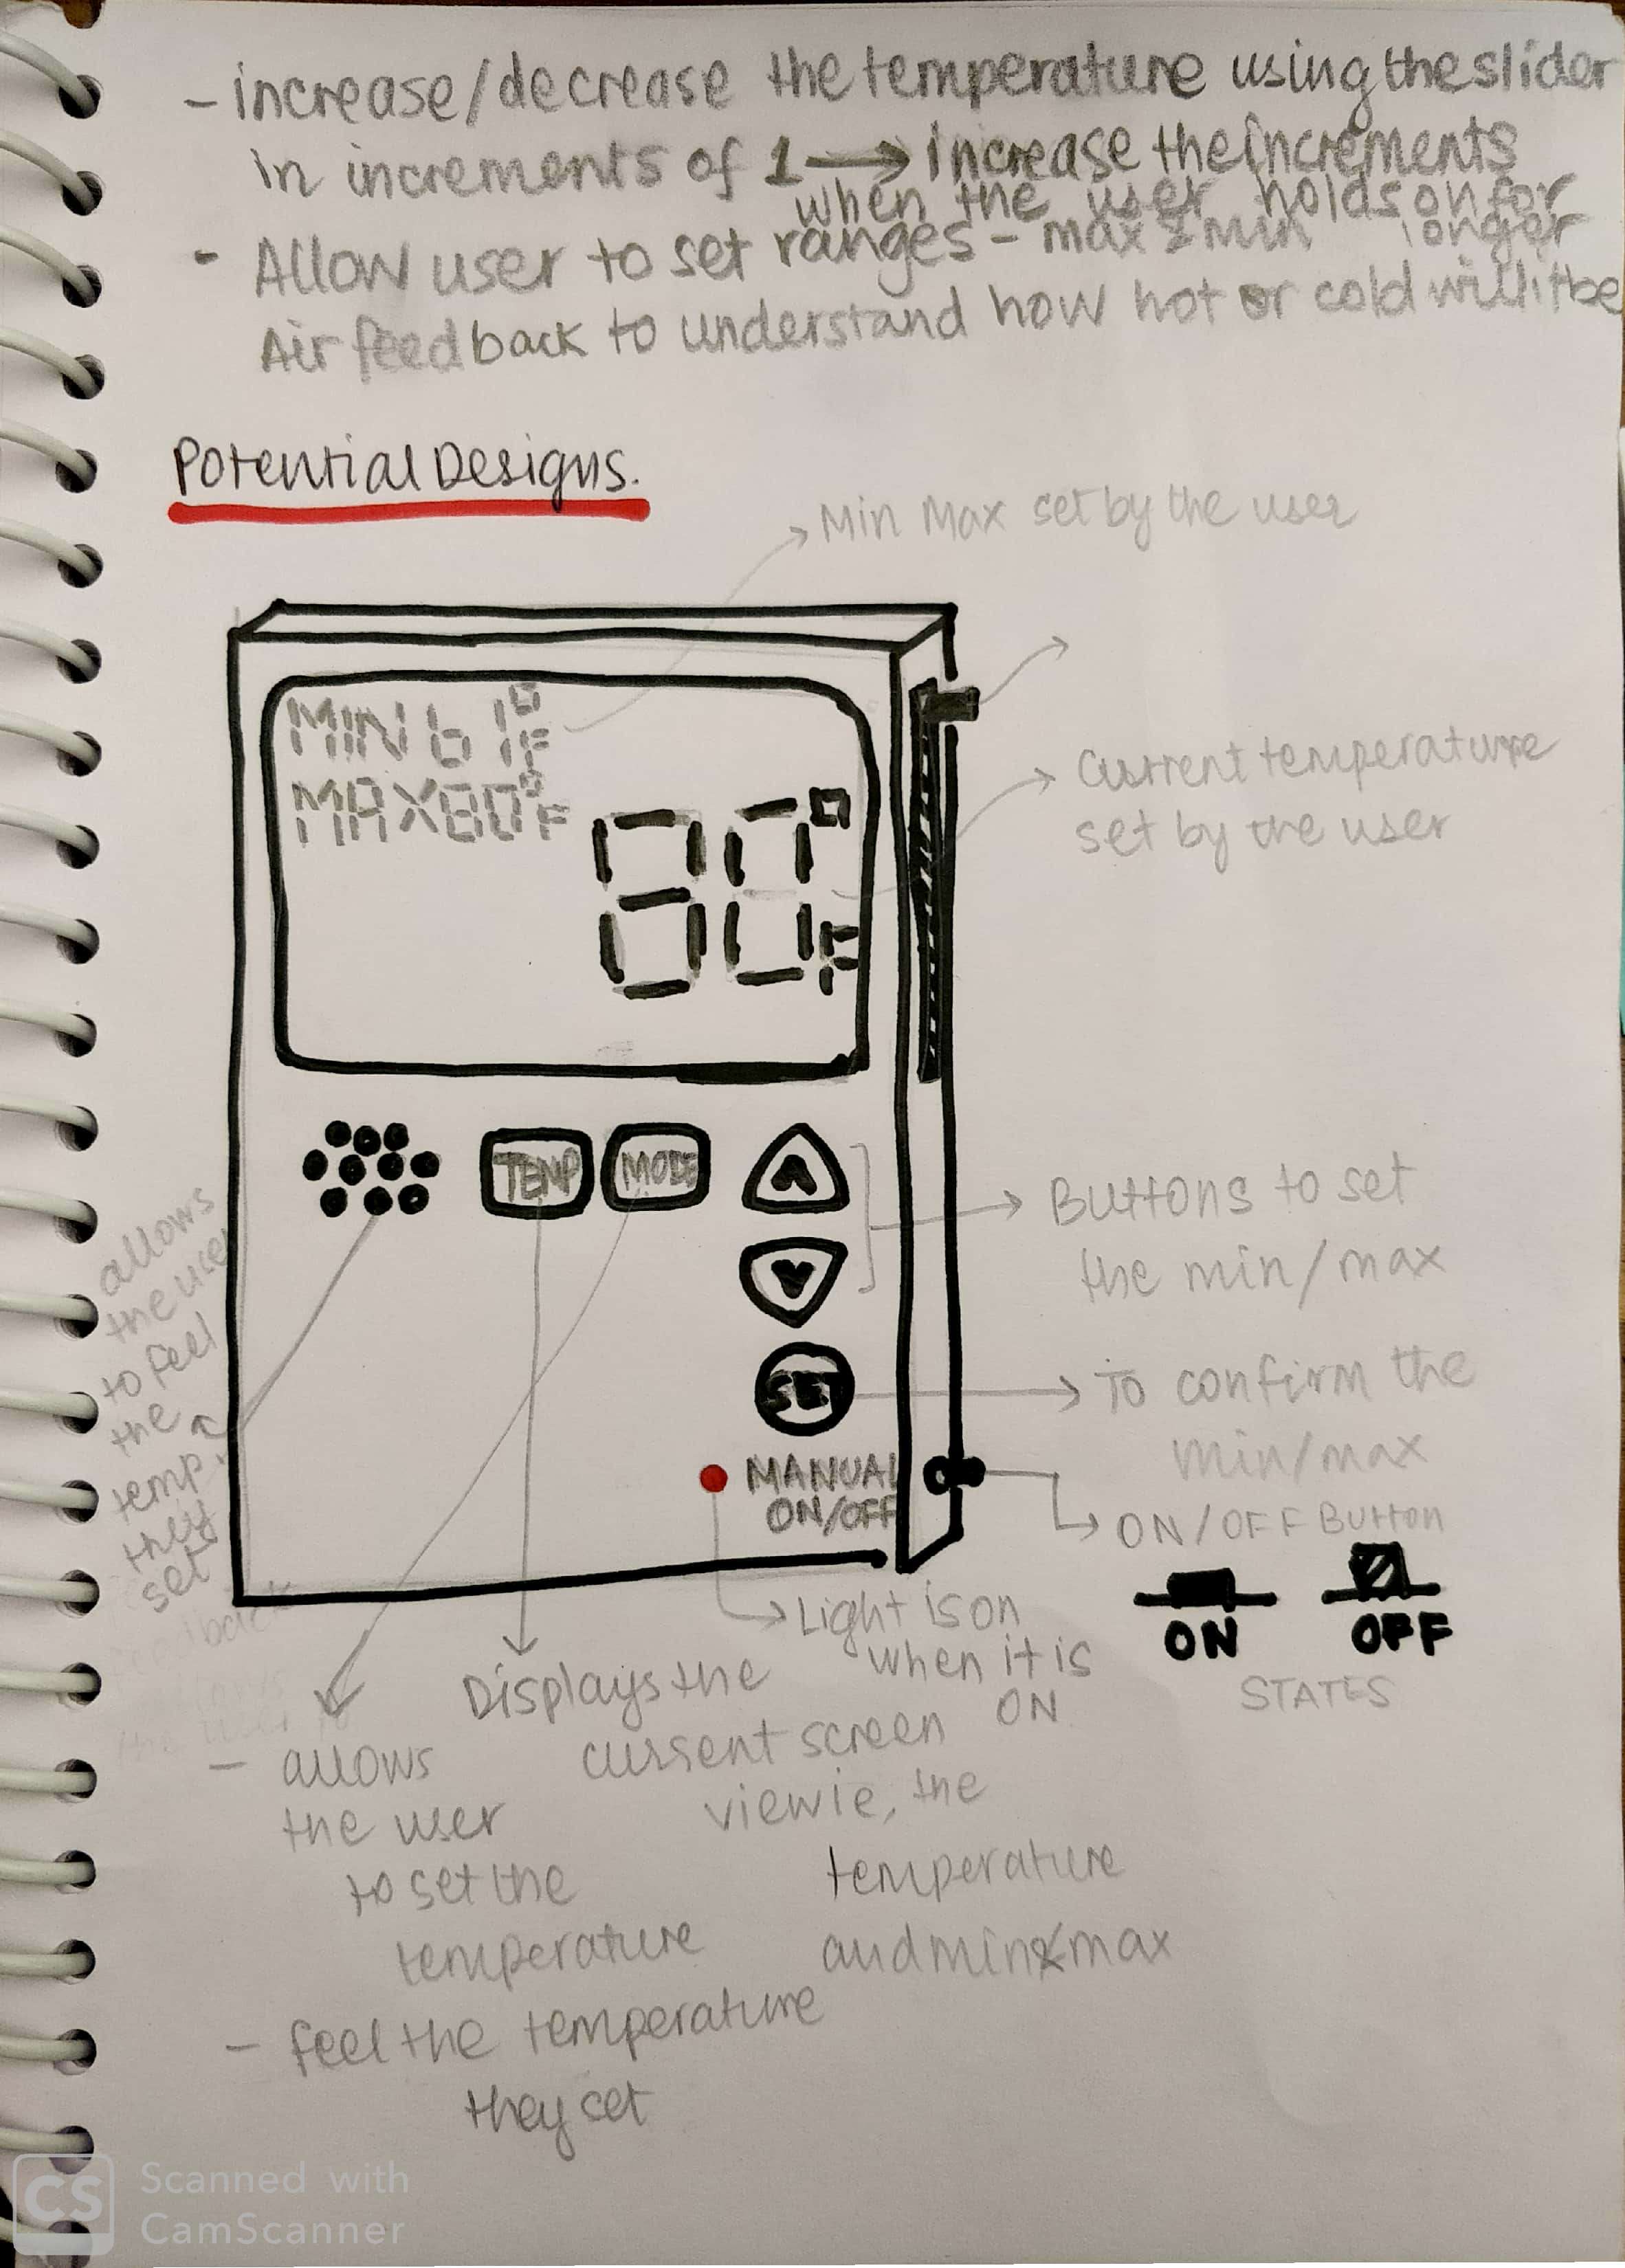 - increase/decrease the temperature using the slider
in increments of 1 → increase the increments
when the user holds on for
longer
- Allow user to set ranges - max & min
Air feedback to understand how hot or cold will it be
Potential Designs.
Min Max set by the user
MIN 61°F
MAX 80°F
80°F
Current temperature
set by the user
TEMP
MODE
Buttons to set
the min/max
SET
To confirm the
min/max
MANUAL
ON/OFF
ON/OFF Button
ON
OFF
STATES
allows
the user
to feel
the
temp.
they
set
Light is on
when it is
ON
Displays the
current screen
view ie, the
temperature
and min & max
- allows
the user
to set the
temperature
- feel the temperature
they set
CS
Scanned with
CamScanner